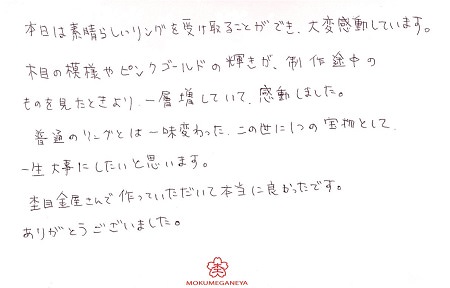 本日は素晴らしいリングを受け取ることができ、大変感動しています。
木目の模様やピンクゴールドの輝きが、制作途中の
ものを見たときより、一層増していて、感動しました。
普通のリングとは一味変わった、この世に1つの宝物として、
一生大事にしたいと思います。
杢目金屋さんで作っていただいて本当に良かったです。
ありがとうございました。
MOKUMEGANEYA